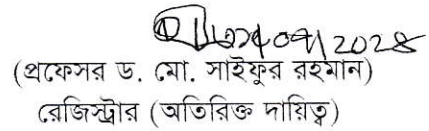 (প্রফেসর ড. মো. সাইফুর রহমান)
রেজিস্ট্রার (অতিরিক্ত দায়িত্ব)